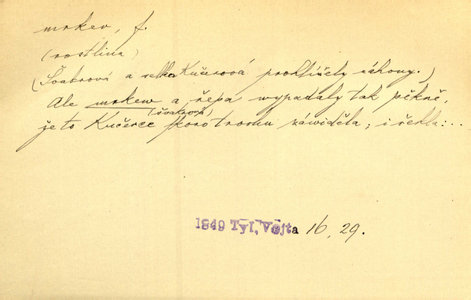 mrkev, f.
(rostlina)
(Švábová a Kučerová prohlížely záhony.)
Ale mrkew a řepa wypadaly tak pěkně,
(švábowá)
že to Kučerce skoro tromu záwiděla; i řekla:..
1849 Tyl, Vojta 16, 29.